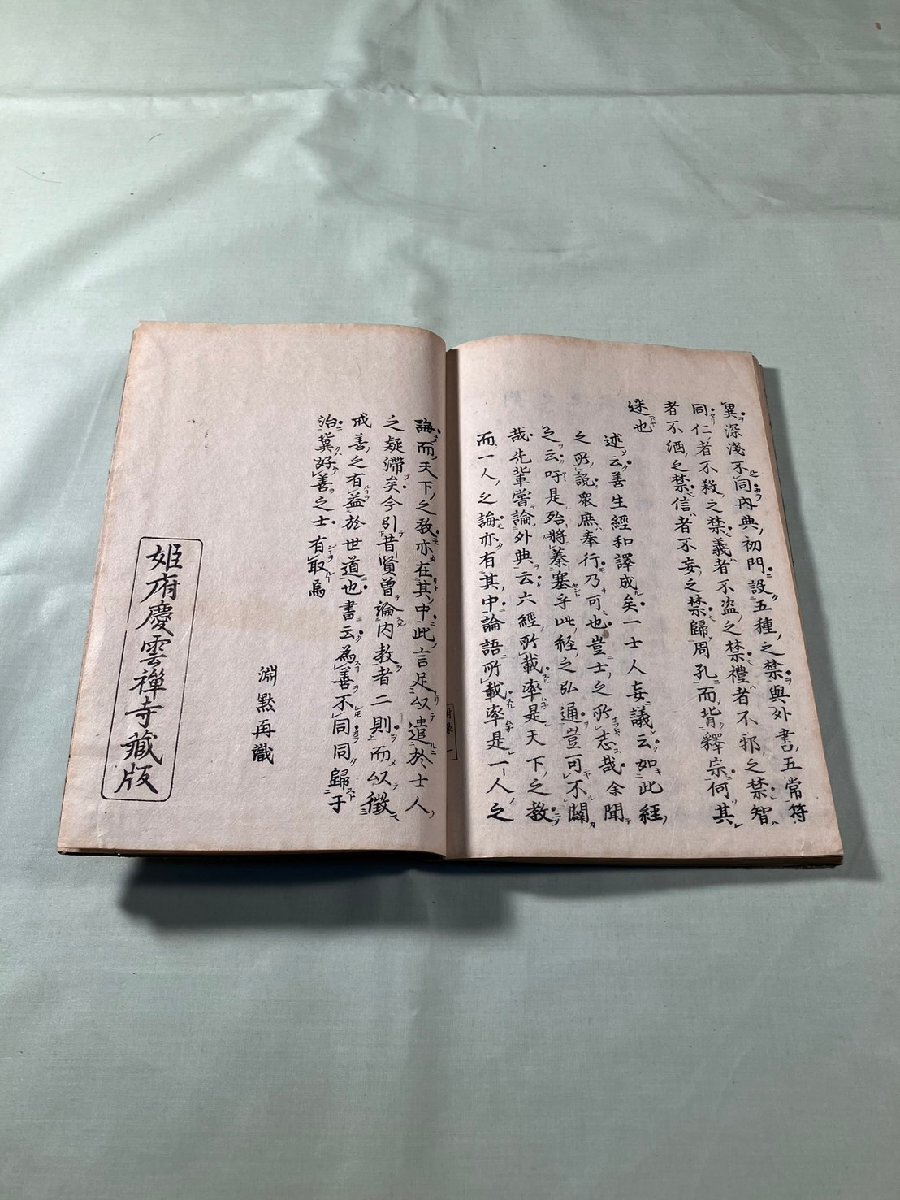 異深淺不同內典初門設五種之禁與外書五常符
同仁者不殺之禁義者不盜之禁禮者不邪之禁智
者不酒之禁信者不妄之禁歸周孔而背釋宗何其
迷也
述云善生經和譯成矣一士人妄議云如此經
之所說衆庶奉行乃可也豈士之所志哉余聞
之云吁是殆將蓁塞乎此經之弘通豈可不闢
哉先輩嘗論外典云六經所載率是天下之教
而一人之誨亦有其中論語所載率是一人之
誨而天下之教亦在其中此言足以遣於士人
之疑滯矣今引昔賢曾論內教者二則而以徵
戒善之有益於世道也書云爲善不同同歸于
治冀好善之士有取焉
淵黙再識
姬府慶雲禪寺藏版